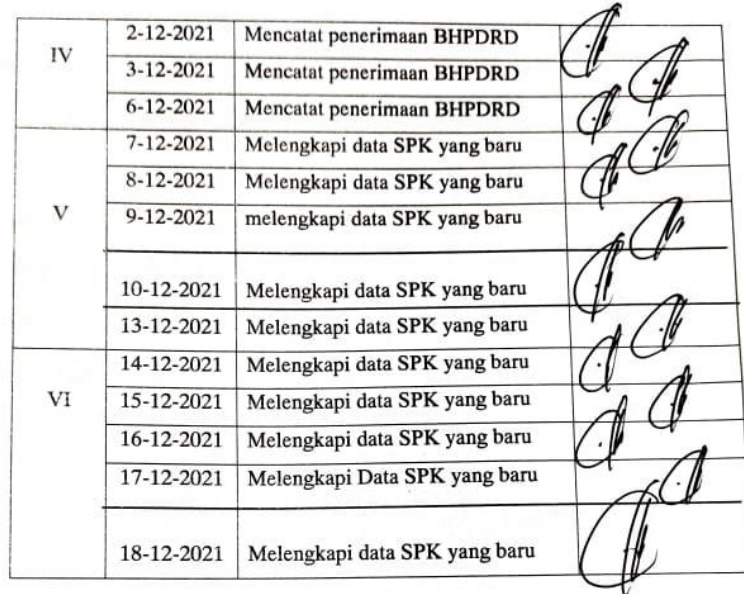 IV
2-12-2021 Mencatat penerimaan BHPDRD
3-12-2021 Mencatat penerimaan BHPDRD
6-12-2021 Mencatat penerimaan BHPDRD
V
7-12-2021 Melengkapi data SPK yang baru
8-12-2021 Melengkapi data SPK yang baru
9-12-2021 melengkapi data SPK yang baru
10-12-2021 Melengkapi data SPK yang baru
13-12-2021 Melengkapi data SPK yang baru
VI
14-12-2021 Melengkapi data SPK yang baru
15-12-2021 Melengkapi data SPK yang baru
16-12-2021 Melengkapi data SPK yang baru
17-12-2021 Melengkapi Data SPK yang baru
18-12-2021 Melengkapi data SPK yang baru